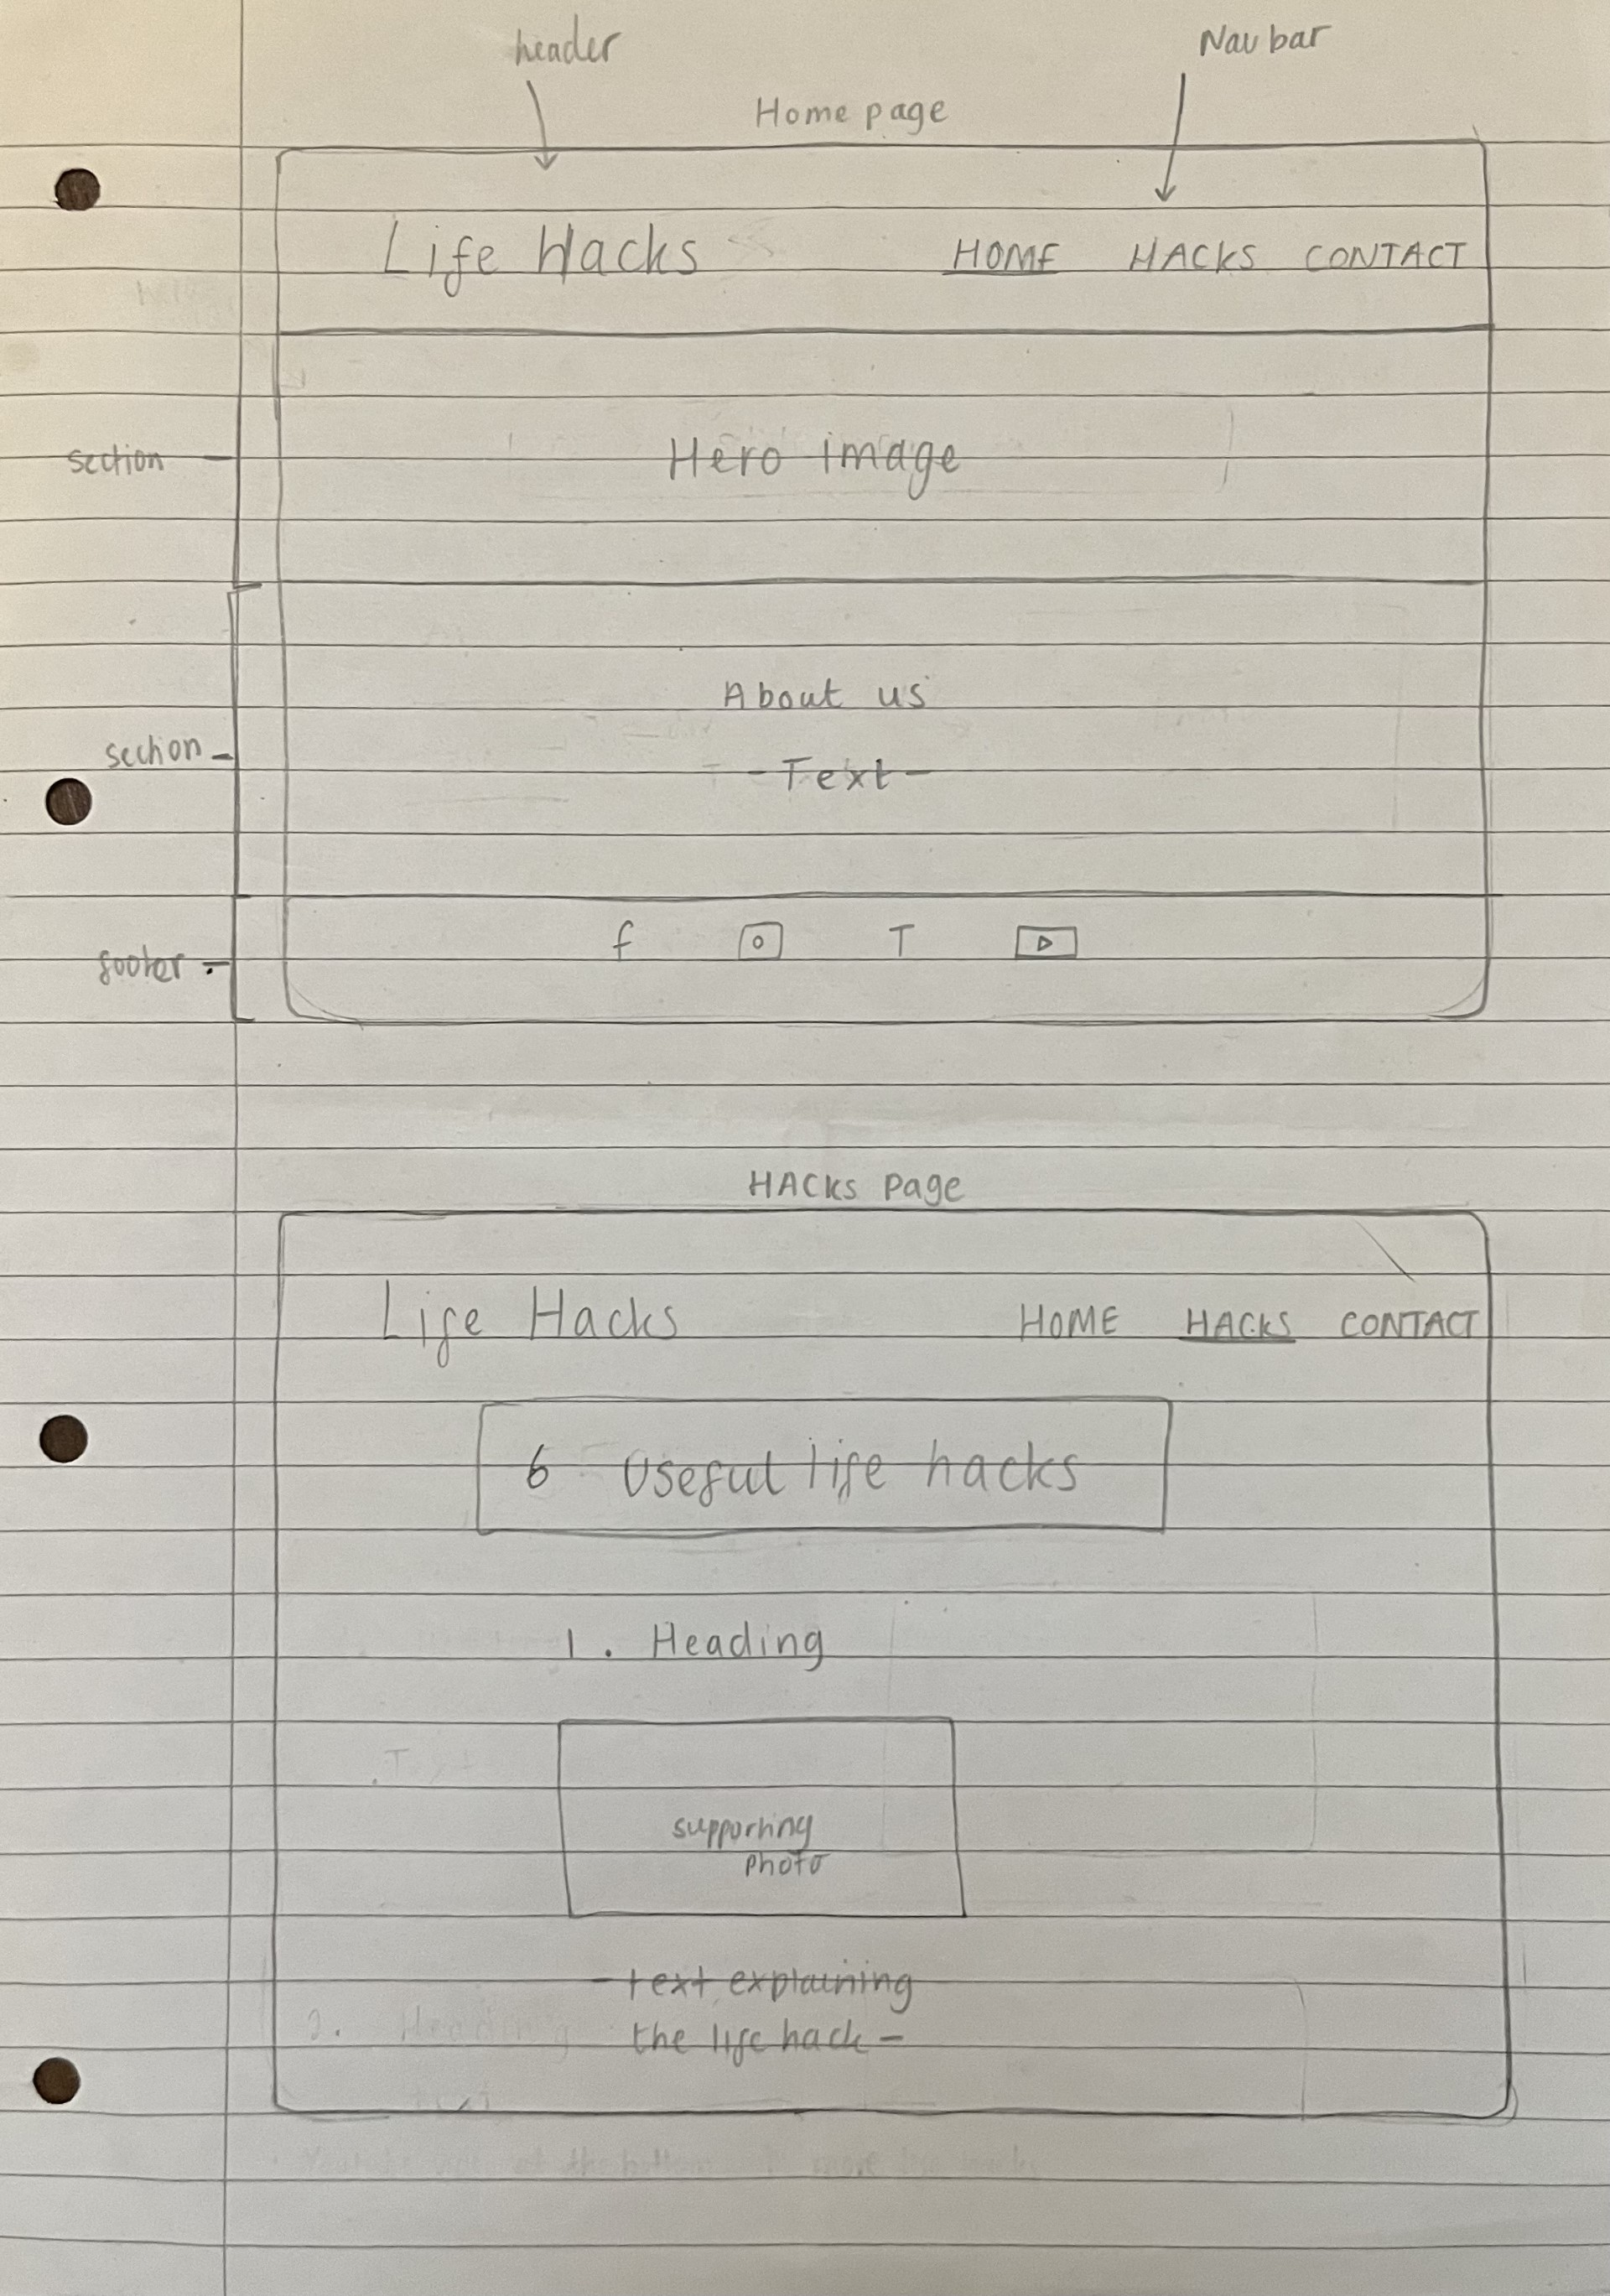 header
Nav bar
Home page
Life Hacks HOME HACKS CONTACT
section
Hero image
About us
section
- Text -
f T
footer
HACKS page
Life Hacks HOME HACKS CONTACT
6 Useful life hacks
1. Heading
supporting
photo
- text explaining
the life hack -